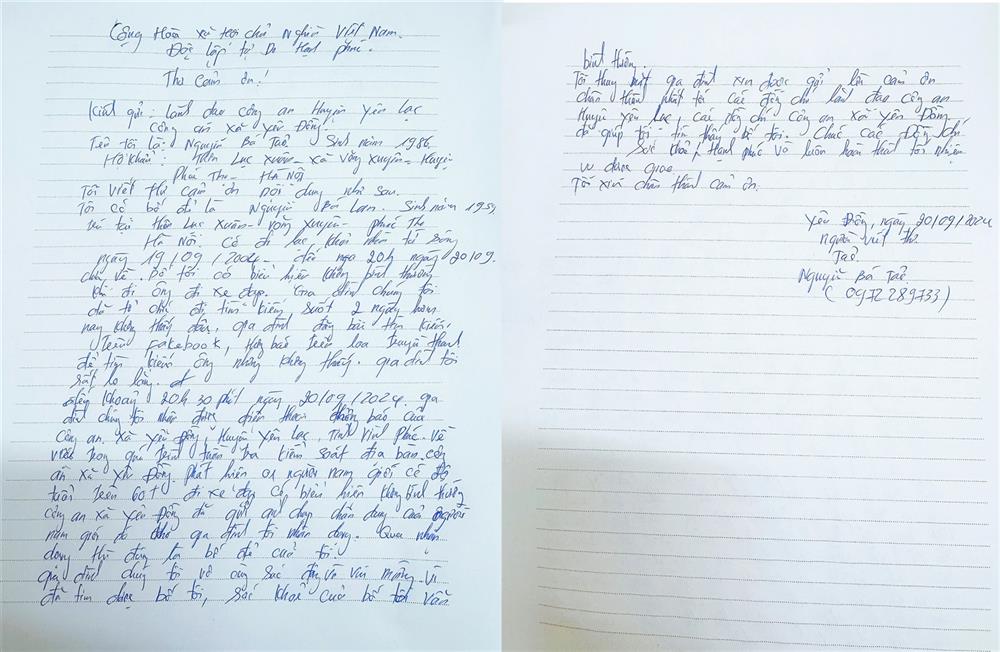 Cộng Hoà xã hội chủ Nghĩa Việt Nam.
Độc lập tự Do Hạnh phúc.
Thư Cảm ơn!
Kính gửi: lãnh đạo công an Huyện Yên Lạc
Công an xã Yên Đồng
Tên tôi là: Nguyễn Bá Taể Sinh năm 1986
Hộ khẩu: Thôn Lục Xuân - xã Võng Xuyên - Huyện
Phúc Thọ - Hà Nội
Tôi viết thư cảm ơn nội dung như sau.
Tôi có bố đẻ là Nguyễn Bá Lan. Sinh năm 195
trú tại thôn Lục Xuân - Võng Xuyên - Phúc Thọ
Hà Nội. Có đi lạc khỏi nhà từ sáng
ngày 19/09/2024 - đến nga 20h ngày 20/09.
chưa về. Bố tôi có biểu hiện không bình thường
khi đi ông đi xe đạp. Gia đình chúng tôi
đã tổ chức đi tìm kiếm, suốt 2 ngày hôm
nay không thấy đâu, gia đình đăng bài tìm kiếm,
trên Facebook, thông báo trên loa truyền thanh
để tìm kiếm ông nhưng không thấy. gia đình tôi
rất lo lắng.
đến khoảng 20h 30 phút ngày 20/09/2024. gia
đình chúng tôi nhận được điện thoại thông báo của
Công an xã Yên Đồng, Huyện Yên Lạc, Tỉnh Vĩnh Phúc. Về
việc trong quá trình tuần tra kiểm soát địa bàn công
an xã Yên Đồng phát hiện 01 người nam giới có độ
tuổi trên 60t đi xe đạp có biểu hiện không bình thường
công an xã Yên Đồng đã gửi ảnh chụp chân dung của người
nam giới đó cho gia đình tôi nhận dạng. Qua nhận
dạng thì đúng là bố đẻ của tôi.
gia đình chúng tôi vô cùng xúc động và vui mừng vì
đã tìm được bố tôi, sức khoẻ của bố tôi vẫn
bình thường.
Tôi thay mặt gia đình xin được gửi lời cảm ơn
chân thành nhất tới các đồng chí lãnh đạo công an
Huyện Yên Lạc, các đồng chí công an xã Yên Đồng
đã giúp tôi tìm thấy bố tôi. Chúc các Đồng chí
Sức khoẻ, Hạnh phúc và luôn hoàn thành tốt nhiệm
vụ được giao
Tôi xin chân thành cảm ơn.
Yên Đồng, ngày 20/09/2024
người viết thư.
Taể
Nguyễn Bá Taể
(0972289733)